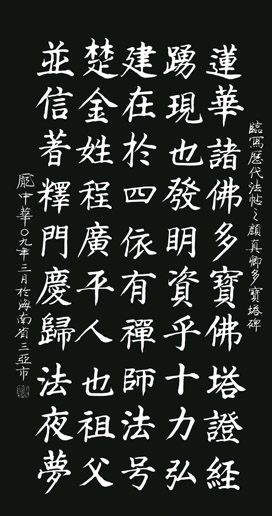 臨寫歷代法帖之顏真卿多寶塔碑
蓮華諸佛多寶佛塔證經
踴現也發明資乎十力弘
建在於四依有禪師法号
楚金姓程廣平人也祖父
並信著釋門慶歸法夜夢
龐中華〇九年三月於海南省三亞市